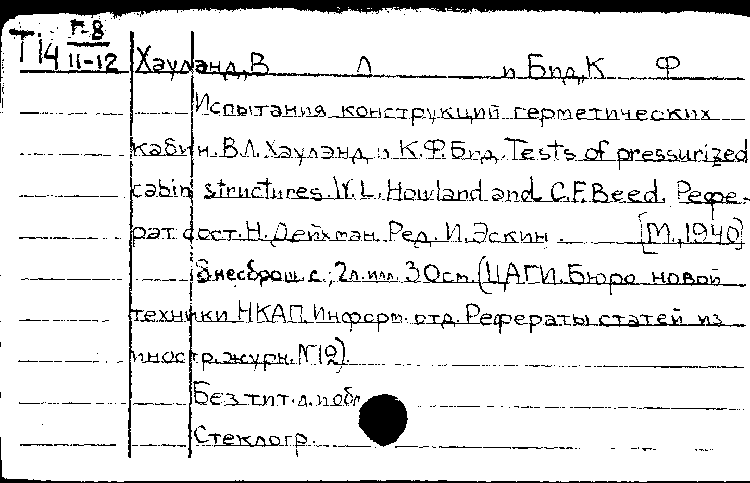 Т14 Г-8
11-12 Хауланд, В Л и Бид, К Ф
Испытания конструкций герметических
кабин. В.Л. Хауланд и К.Ф. Бид. Tests of pressurized
cabin structures. W.L. Howland and C.F. Beed. Рефе-
рат сост. Н. Дейхман. Ред. И. Эскин. [М., 1940]
8 несброш. с.; 2л. илл. 30см. (ЦАГИ. Бюро новой
техники НКАП. Информ. отд. Рефераты статей из
иностр. журн. №12).
Без тит. л. и обл
Стеклогр.